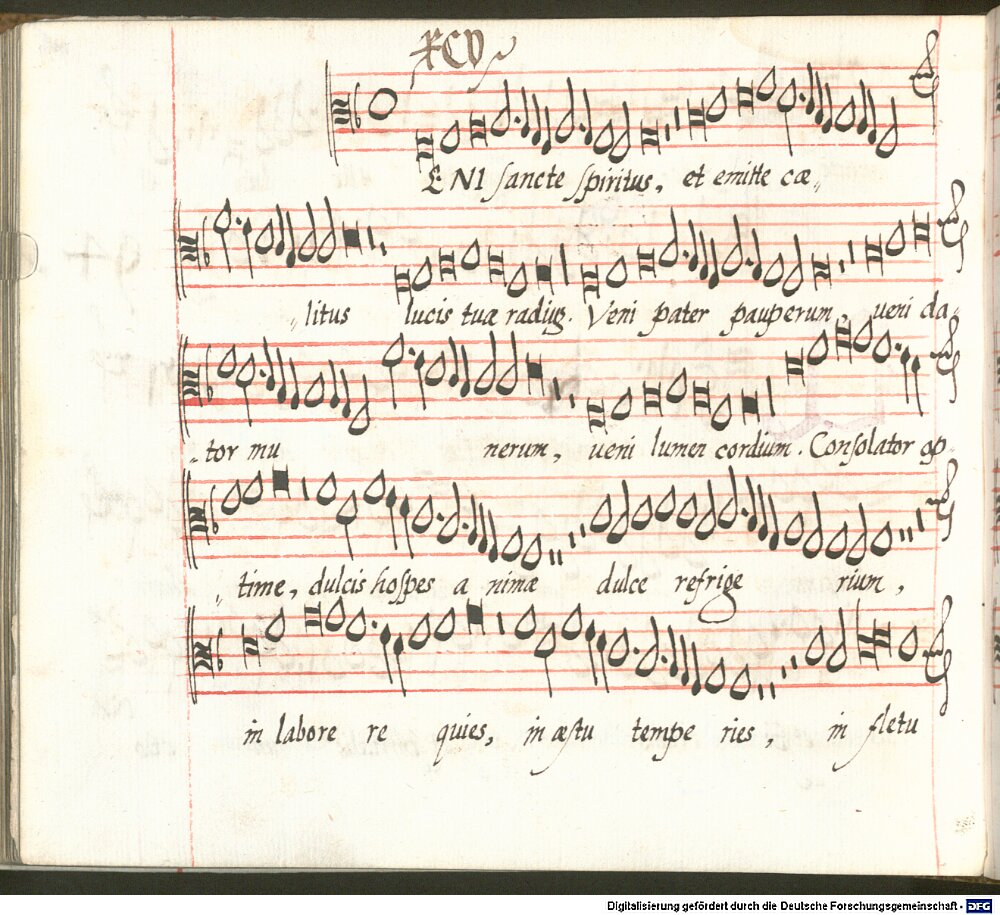 XCV
ENI sancte spiritus, et emitte cæ„
„litus lucis tuæ radiũ. Veni pater pauperum, ueni da„
„tor mu nerum, ueni lumen cordium. Consolator op„
„time, dulcis hospes a nimæ dulce refrige rium,
in labore re quies, in æstu tempe ries, in fletu
Digitalisierung gefördert durch die Deutsche Forschungsgemeinschaft - DFG